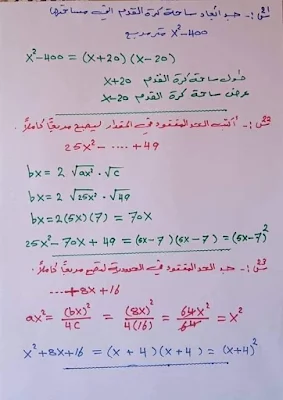 س21:- جد ابعاد ساحة كرة القدم التي مساحتها
x²-400 متر مربع
x²-400 = (x+20)(x-20)
طول ساحة كرة القدم x+20
عرض ساحة كرة القدم x-20
س22:- أكتب الحد المفقود في المقدار ليصبح مربعًا كاملاً.
25x² - .... +49
bx = 2 √ax² · √c
bx = 2 √25x² · √49
bx = 2(5x)(7) = 70x
25x²-70x+49 = (5x-7)(5x-7) = (5x-7)²
س23:- جد الحد المفقود في الحدودية لتصبح مربعًا كاملاً.
....+8x+16
ax² = (bx)²/4c = (8x)²/4(16) = 64x²/64 = x²
x²+8x+16 = (x+4)(x+4) = (x+4)²